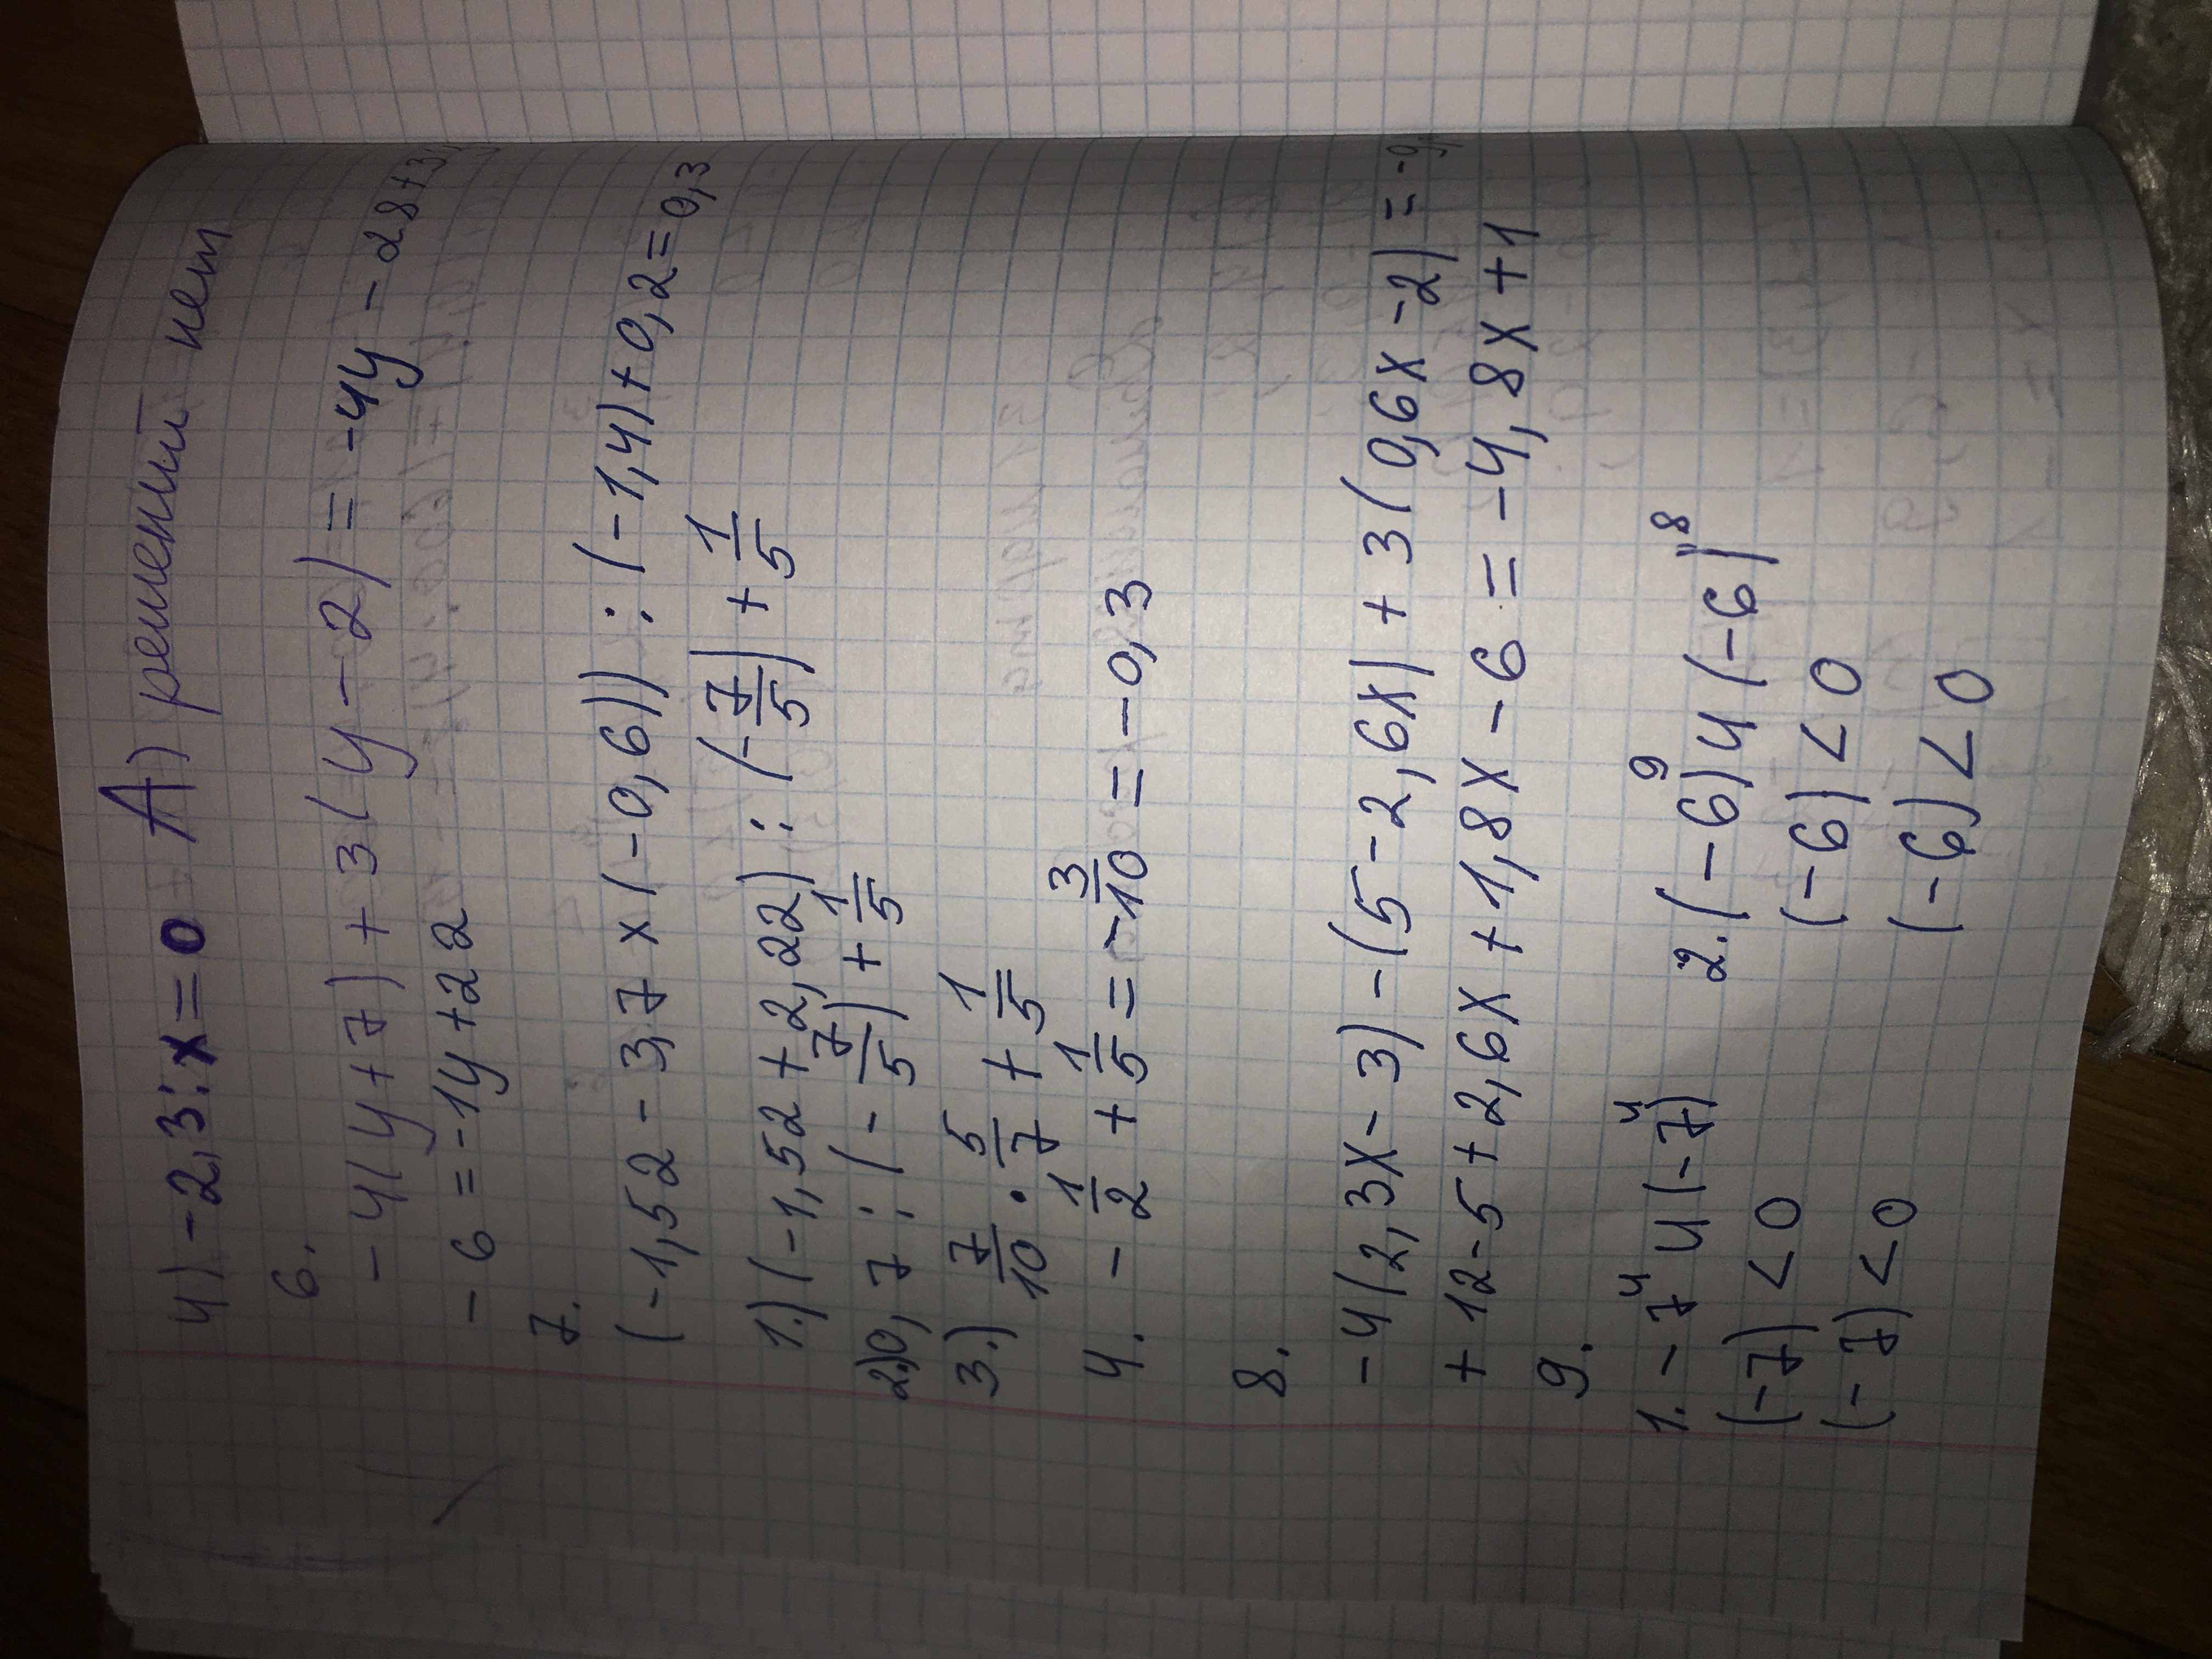 4) -2,3:x=0 А) решений нет
6.
-4(y+7)+3(y-2)=-4y-28+3
-6=-1y+22
7.
(-1,52-3,7x(-0,6)):(-1,4)+0,2=0,3
1.)(-1,52+2,22):(-7/5)+1/5
2)0,7:(-7/5)+1/5
3.) 7/10·5/7+1/5
4. -1/2+1/5=-3/10=-0,3
8.
-4(2,3x-3)-(5-2,6x)+3(0,6x-2)=-9,
+12-5+2,6x+1,8x-6=-4,8x+1
9.
1. -7⁴ и (-7)⁴ 2. (-6)⁹ и (-6)⁸
(-7)<0 (-6)<0
(-7)<0 (-6)<0